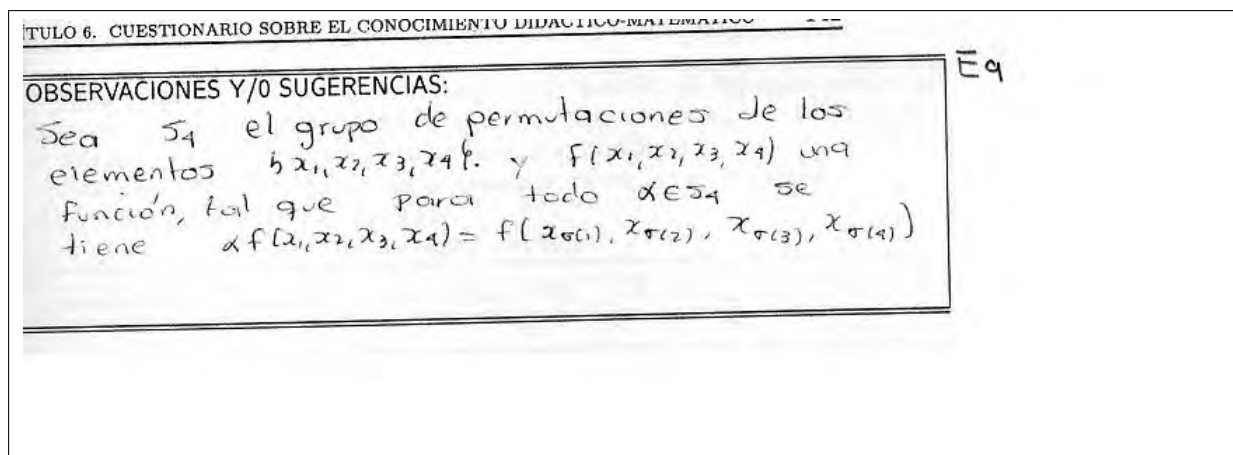 TULO 6. CUESTIONARIO SOBRE EL CONOCIMIENTO DIDÁCTICO-MATEMÁTICO 142
OBSERVACIONES Y/0 SUGERENCIAS: E9
Sea S4 el grupo de permutaciones de los
elementos {x1, x2, x3, x4}. y f(x1, x2, x3, x4) una
función, tal que para todo α ∈ S4 se
tiene αf(x1, x2, x3, x4) = f(xσ(1), xσ(2), xσ(3), xσ(4))